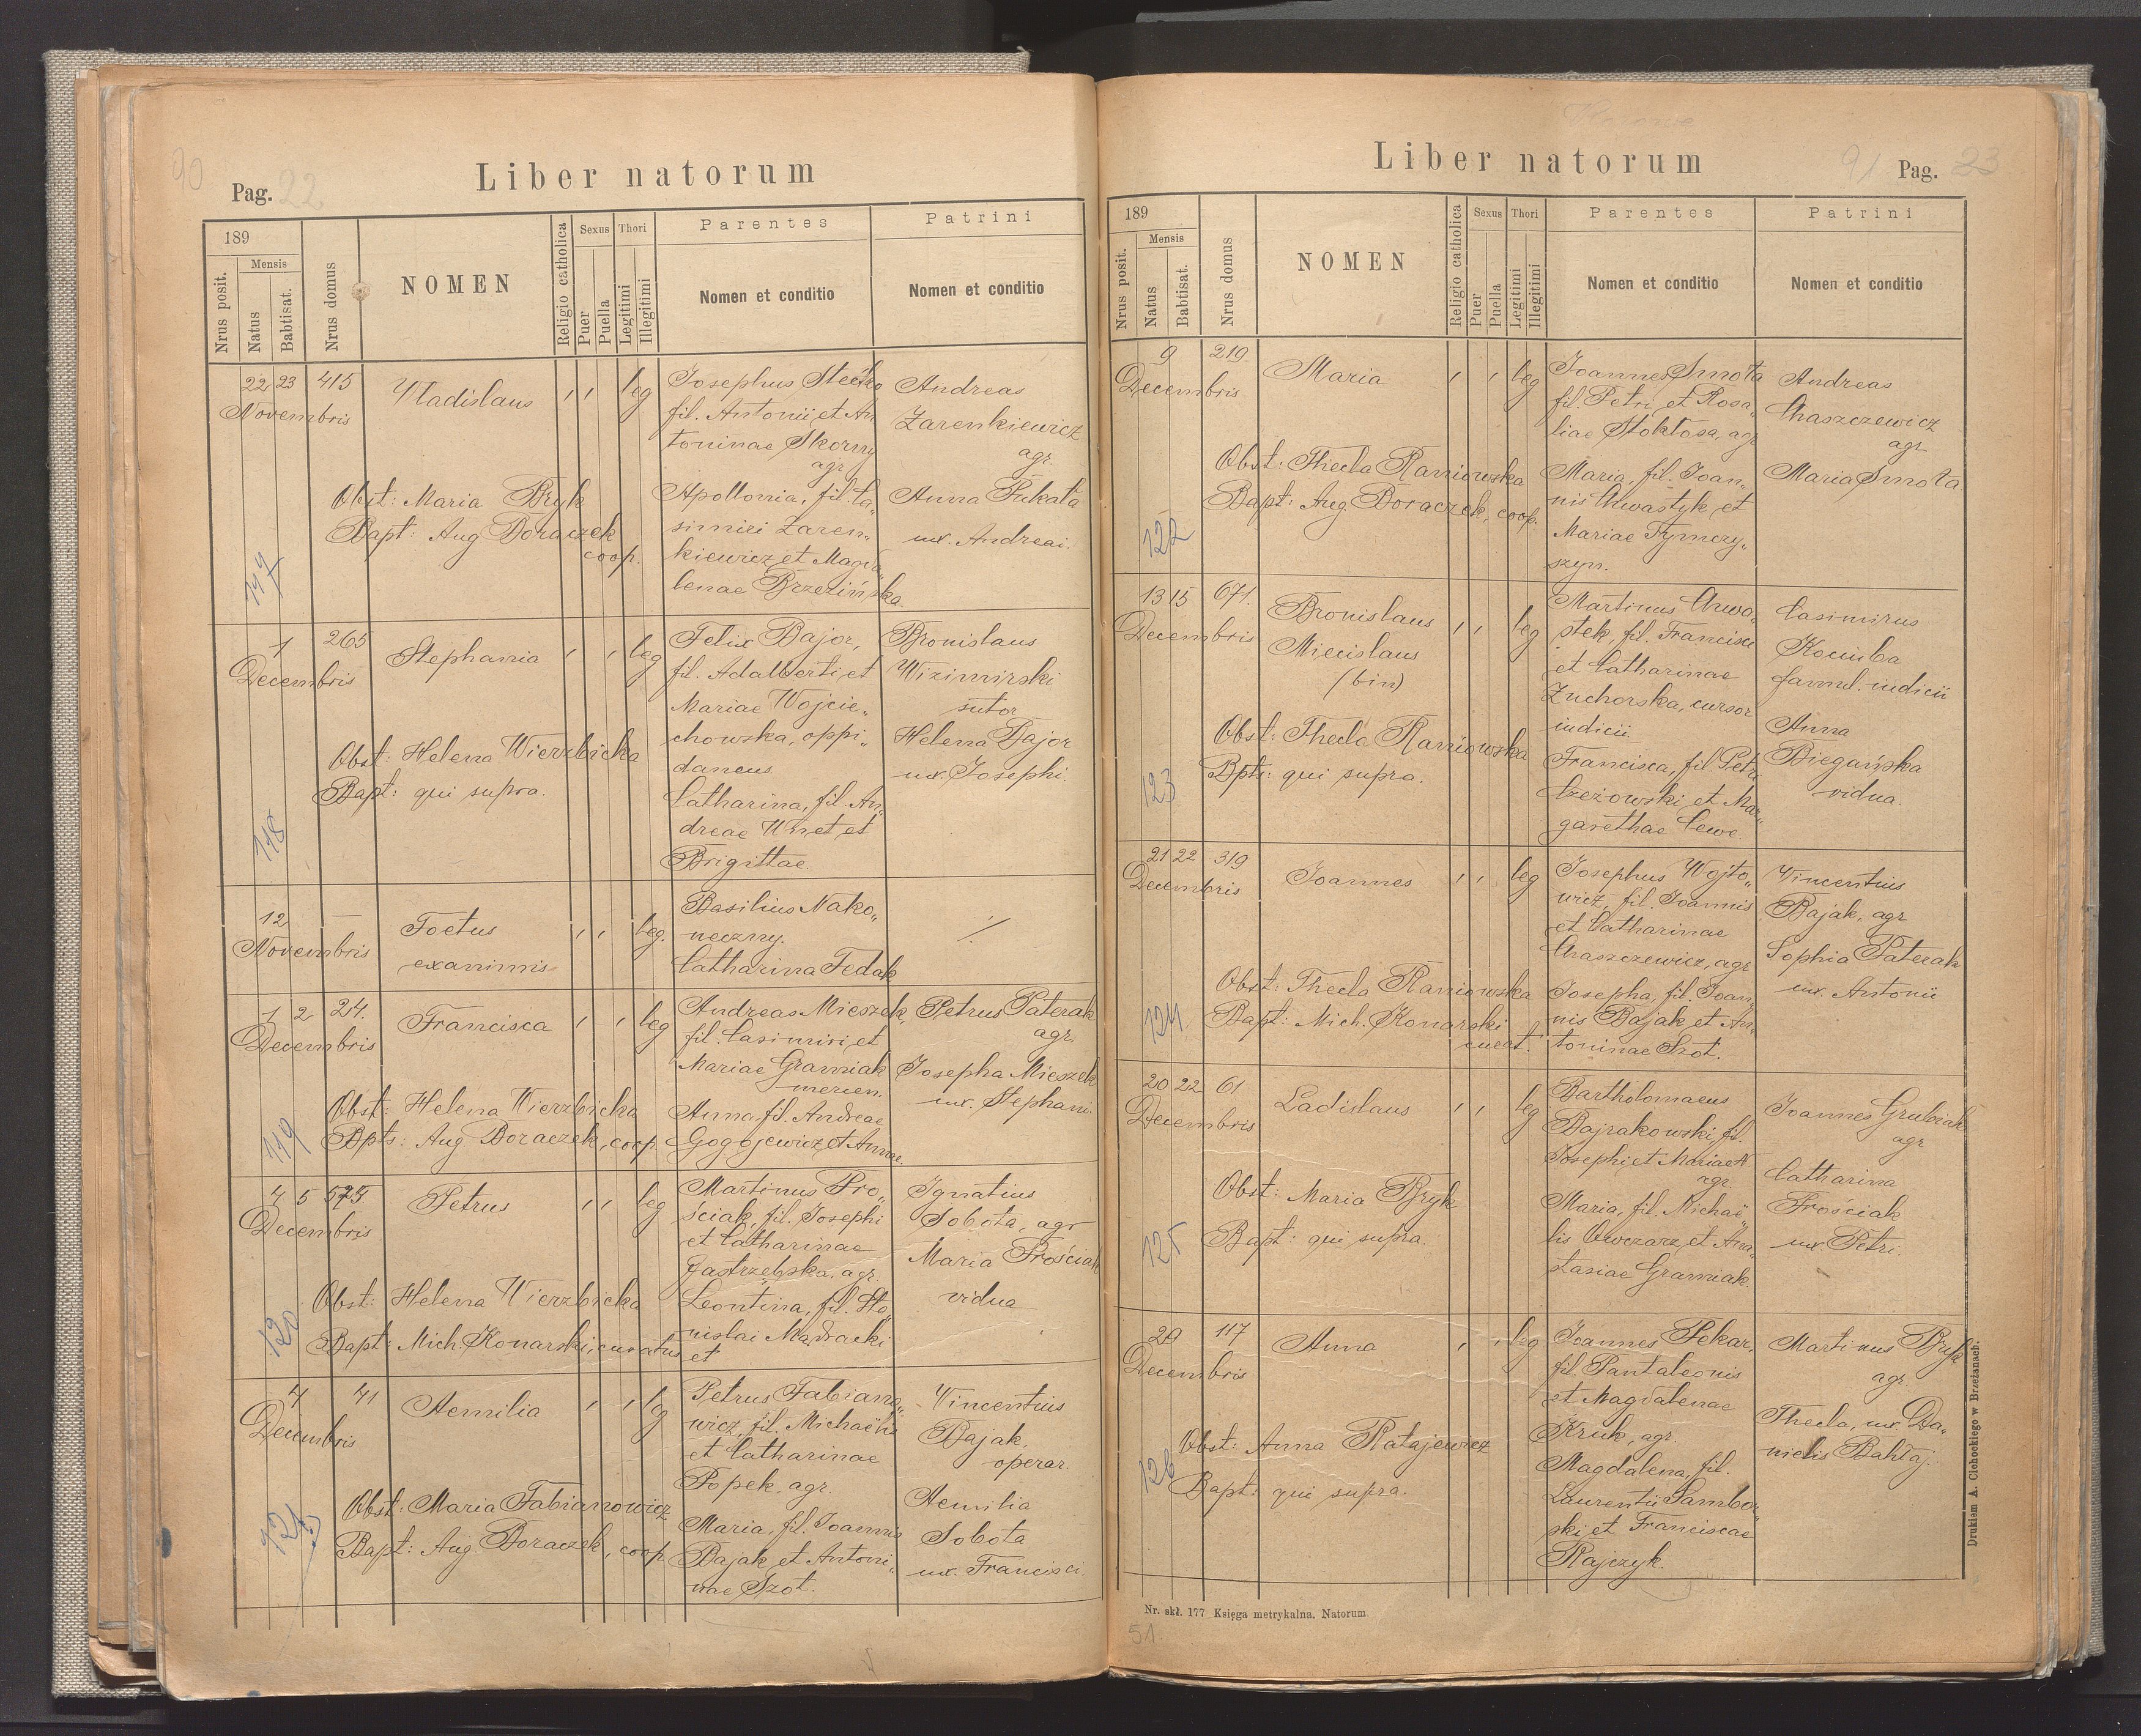 90
Pag. 22
Liber natorum
189
Nrus posit.
Mensis
Natus
Babtisat.
Nrus domus
NOMEN
Religio catholica
Sexus
Puer
Puella
Thori
Legitimi
Illegitimi
Parentes
Nomen et conditio
Patrini
Nomen et conditio
22 23 415
Novembris
Vladislaus , , leg
Obst: Maria Bryk
Bapt: Aug Boraczek
coop.
117
Josephus Stećko
fil. Antonii et An
toninae Skorny
agr
Apollonia, fil. Ca„
simiri Zaren„
kiewicz et Magda
lenae Brzezińska.
Andreas
Zarenkiewicz
agr.
Anna Pukała
ux. Andreai.
1 265
Decembris
Stephania , , leg
Obst: Helena Wierzbicka
Bapt: qui supra.
118
Felix Bajor,
fil. Adalberti et
Mariae Wojcie„
chowska, oppi„
daneus.
Catharina, fil. An„
dreae Wnet et
Brigittae.
Bronislaus
Wizimirski
sutor
Helena Bajor
ux. Josephi.
12 —
Novembris
Foetus
exanimis
, , leg.
Basilius Nako„
neczny.
Catharina Fedak
./.
1 2 24.
Decembris
Francisca , , leg
Obst: Helena Wierzbicka
Bpts: Aug Boraczek, coop.
119
Andreas Mieszek,
fil. Casimiri et
Mariae Graniak
mercen.
Anna, fil. Andreae
Gogojewicz et Annae.
Petrus Paterak
agr.
Josepha Mieszek
ux. Stephani.
4 5 575.
Decembris
Petrus , , leg
Obst: Helena Wierzbicka
Bapt: Mich. Konarski, curatus
120
Martinus Pro„
ściak, fil. Josephi
et Catharinae
Jastrzębska, agr.
Leontina, fil. Sta„
nislai Mądracki
et
Ignatius
Sobota, agr
Maria Prościak
vidua
4 41
Decembris
Aemilia , , leg
Obst: Maria Fabianowicz
Bapt: Aug. Boraczek, coop
121
Petrus Fabiano„
wicz, fil. Michaëlis
et Catharinae
Popek, agr.
Maria, fil. Joannis
Bajak et Antoni„
nae Szot.
Vincentius
Bajak,
operar.
Aemilia
Sobota
ux. Francisci.
Liber natorum
91 Pag. 23
189
Nrus posit.
Mensis
Natus
Babtisat.
Nrus domus
NOMEN
Religio catholica
Sexus
Puer
Puella
Thori
Legitimi
Illegitimi
Parentes
Nomen et conditio
Patrini
Nomen et conditio
9 219
Decembris
Maria , , leg
Obst: Thecla Raniowska
Bapt: Aug Boraczek, coop.
122
Joannes Smota
fil. Petri et Rosa„
liae Stokłosa, agr
Maria, fil. Joan„
nis Chwastyk et
Mariae Tymczy„
szyn.
Andreas
Chaszczewicz
agr
Maria Smota
13 15 671.
Decembris
Bronislaus
Miecislaus
(bin)
, , leg
Obst: Thecla Raniowska
Bpts: qui supra.
123
Martinus Chwa„
stek, fil. Francisci
et Catharinae
Zuchorska, cursor
iudicii
Francisca, fil. Petri
Czeżowski et Mar„
garethae Cewe.
Casimirus
Kociuba
famul. iudicii
Anna
Biegańska
vidua.
21 22 319
Decembris
Joannes , , leg
Obst: Thecla Raniowska
Bapt: Mich. Konarski
curat.
124
Josephus Wojto„
wicz, fil. Joannis
et Catharinae
Chaszczewicz, agr
Josepha, fil. Joan„
nis Bajak et An„
toninae Szot.
Vincentius
Bajak, agr
Sophia Paterak
ux. Antonii
20 22 61
Decembris
Ladislaus , , leg
Obst: Maria Bryk
Bapt: qui supra.
125
Bartholomaeus
Bajrakowski, fil.
Josephi et Mariae
agr
Maria, fil. Michaë„
lis Owczarz et Ana„
stasiae Graniak
Joannes Grubiak
agr
Catharina
Prościak
ux. Petri.
29 117
Decembris
Anna , , leg
Obst: Anna Ratajewicz
Bapt: qui supra.
126
Joannes Pekar,
fil. Pantaleonis
et Magdalenae
Kruk, agr.
Magdalena, fil.
Laurentii Sambor„
ski et Franciscae
Rajczyk.
Martinus Bryk
agr.
Thecla, ux. Da„
nielis Bahłaj.
Drukiem A. Ciehockiego w Brzeżanach.
Nr. skł. 177 Księga metrykalna, Natorum.
51.